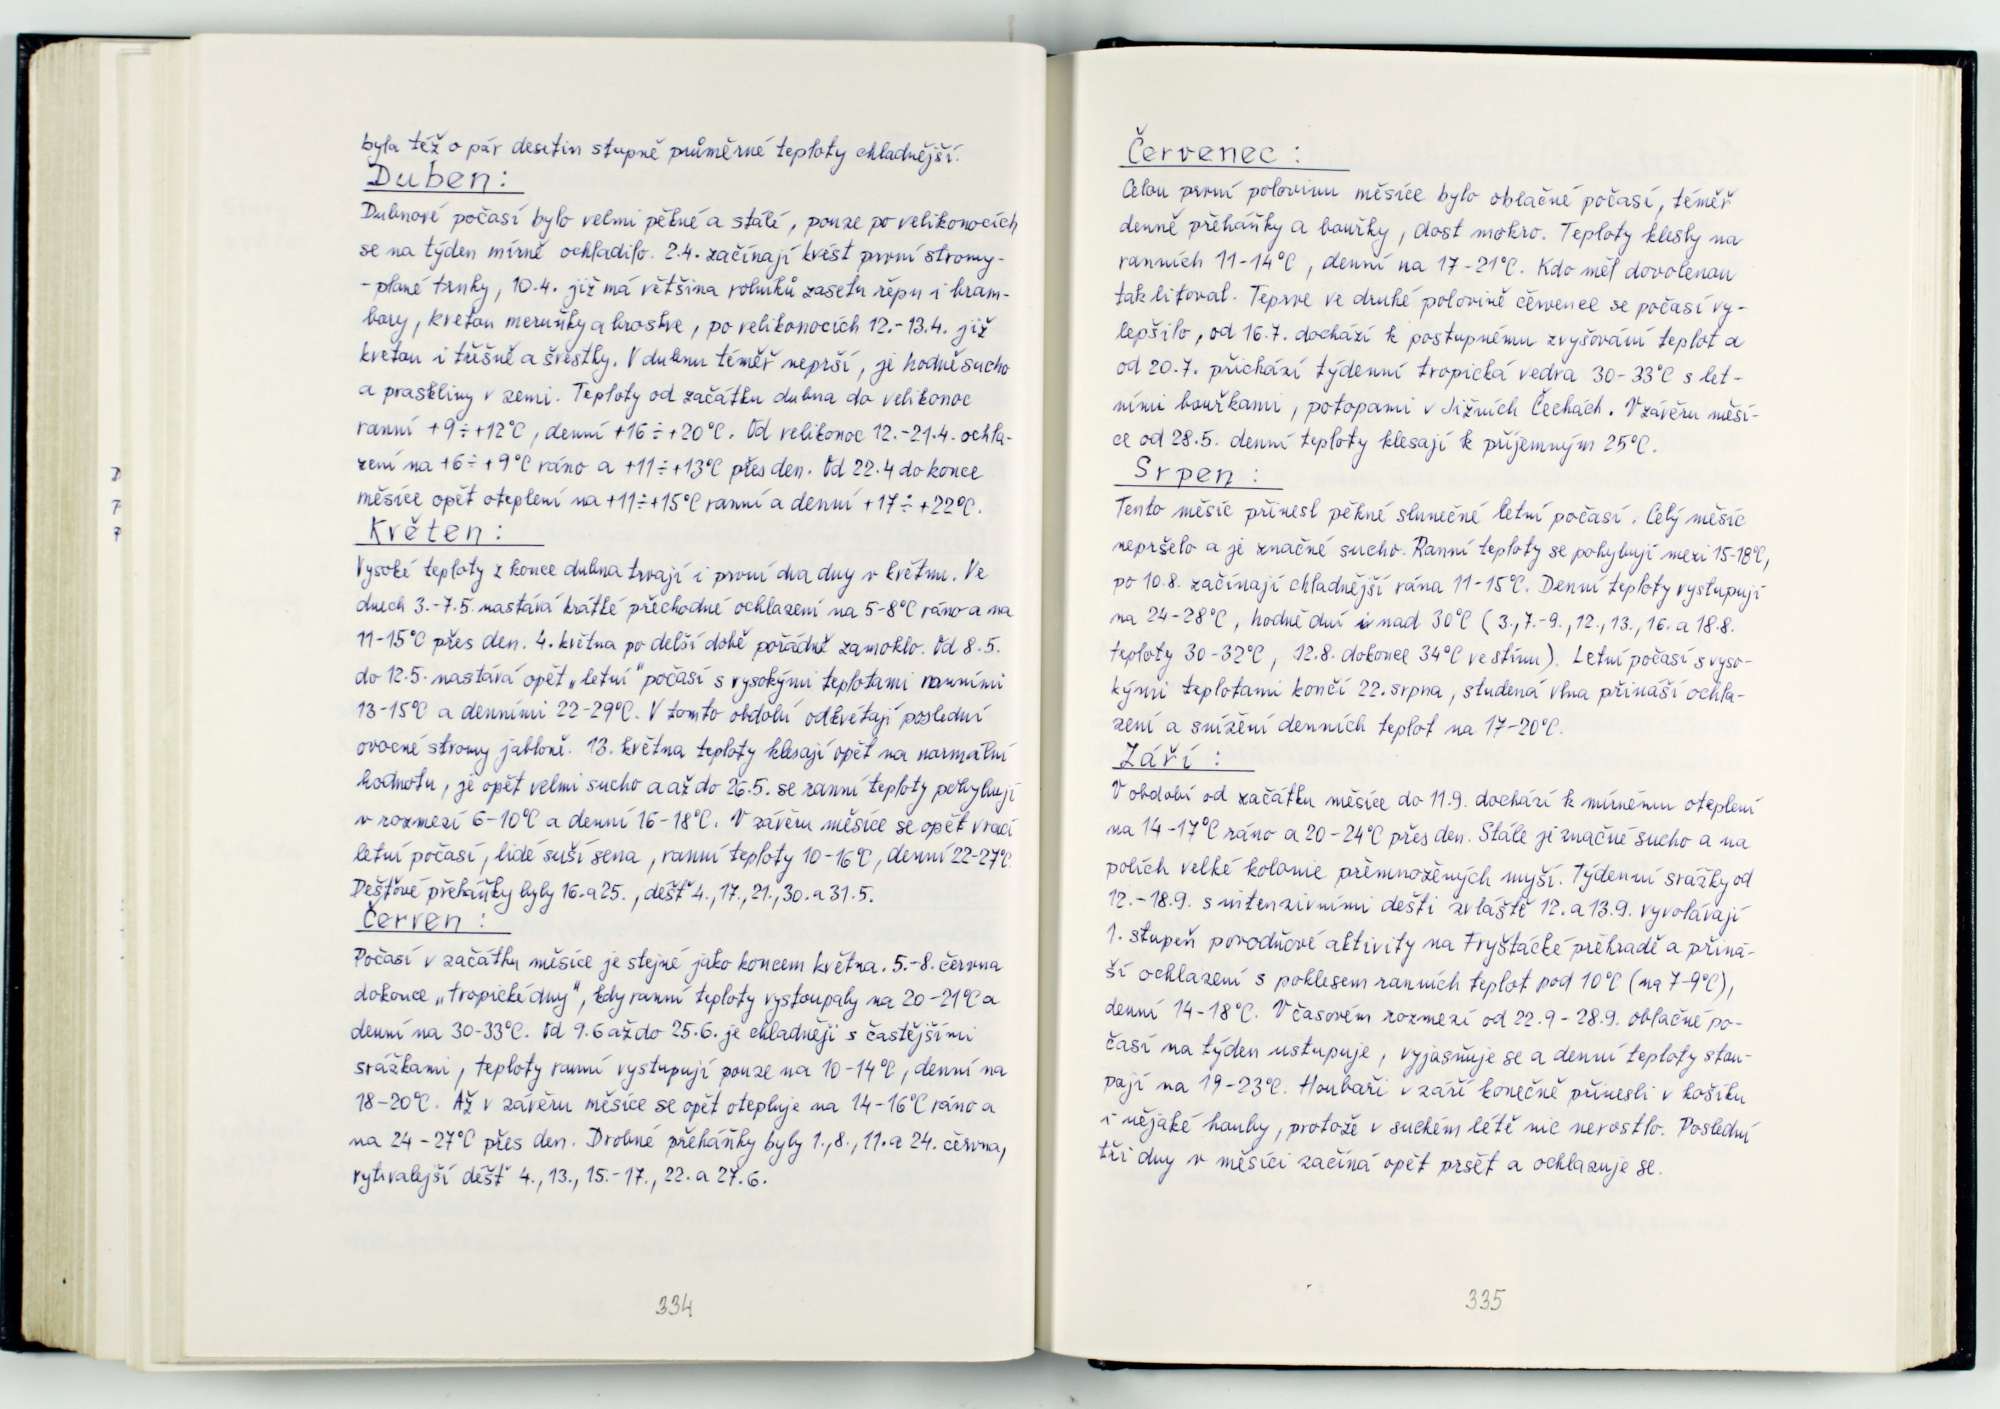 byla též o pár desetin stupně průměrné teploty chladnější.
Duben:
Dubnové počasí bylo velmi pěkné a stálé, pouze po velikonocích
se na týden mírně ochladilo. 2.4. začínají kvést první stromy-
- plané trnky, 10.4. již má většina rolníků zasetu řepu i bram-
bory, kvetou meruňky a broskve, po velikonocích 12.-13.4. již
kvetou i třišně a švestky. V dubnu téměř neprší, je hodně sucho
a praskliny v zemi. Teploty od začátku dubna do velikonoc
ranní +9÷+12°C, denní +16÷+20°C. Od velikonoc 12.-21.4. ochla-
zení na +6÷+9°C ráno a +11÷+13°C přes den. Od 22.4 do konce
měsíce opět oteplení na +11÷+15°C ranní a denní +17÷+22°C.
Květen:
Vysoké teploty z konce dubna trvají i první dva dny v květnu. Ve
dnech 3.-7.5. nastává krátké přechodné ochlazení na 5-8°C ráno a na
11-15°C přes den. 4. května po delší době pořádně zamoklo. Od 8.5.
do 12.5. nastává opět „letní" počasí s vysokými teplotami ranními
13-15°C a denními 22-29°C. V tomto období odkvétají poslední
ovocné stromy jabloně. 13. května teploty klesají opět na normální
hodnotu, je opět velmi sucho a až do 26.5. se ranní teploty pohybují
v rozmezí 6-10°C a denní 16-18°C. V závěru měsíce se opět vrací
letní počasí, lidé suší sena, ranní teploty 10-16°C, denní 22-27°C.
Dešťové přeháňky byly 16. a 25., déšť 4., 17., 21., 30. a 31.5.
Červen:
Počasí v začátku měsíce je stejné jako koncem května. 5.-8. června
dokonce „tropické dny", kdy ranní teploty vystoupaly na 20-21°C a
denní na 30-33°C. Od 9.6 až do 25.6. je chladněji s častějšími
srážkami, teploty ranní vystupují pouze na 10-14°C, denní na
18-20°C. Až v závěru měsíce se opět otepluje na 14-16°C ráno a
na 24-27°C přes den. Drobné přeháňky byly 1., 8., 11. a 24. června,
vytrvalejší déšť 4., 13., 15.-17., 22. a 27.6.
334
Červenec:
Celou první polovinu měsíce bylo oblačné počasí, téměř
denně přeháňky a bouřky, dost mokro. Teploty klesly na
ranních 11-14°C, denní na 17-21°C. Kdo měl dovolenou
tak litoval. Teprve ve druhé polovině července se počasí vy-
lepšilo, od 16.7. dochází k postupnému zvyšování teplot a
od 20.7. přichází týdenní tropická vedra 30-33°C s let-
ními bouřkami, potopami v Jižních Čechách. V závěru měsí-
ce od 28.5. denní teploty klesají k příjemným 25°C.
Srpen:
Tento měsíc přinesl pěkné slunečné letní počasí. Celý měsíc
nepršelo a je značné sucho. Ranní teploty se pohybují mezi 15-18°C,
po 10.8. začínají chladnější rána 11-15°C. Denní teploty vystupují
na 24-28°C, hodně dní i nad 30°C (3., 7.-9., 12., 13., 16. a 18.8.
teploty 30-32°C, 12.8. dokonce 34°C ve stínu). Letní počasí s vyso-
kými teplotami končí 22. srpna, studená vlna přináší ochla-
zení a snížení denních teplot na 17-20°C.
Září:
V období od začátku měsíce do 11.9. dochází k mírnému oteplení
na 14-17°C ráno a 20-24°C přes den. Stále je značné sucho a na
polích velké kolonie přemnožených myší. Týdenní srážky od
12.-18.9. s intenzivními dešti zvláště 12. a 13.9. vyvolávají
1. stupeň povodňové aktivity na Fryštácké přehradě a přiná-
ší ochlazení s poklesem ranních teplot pod 10°C (na 7-9°C),
denní 14-18°C. V časovém rozmezí od 22.9 - 28.9. oblačné po-
časí na týden ustupuje, vyjasňuje se a denní teploty stou-
pají na 19-23°C. Houbaři v září konečně přinesli v košíku
i nějaké houby, protože v suchém létě nic nerostlo. Poslední
tři dny v měsíci začíná opět pršet a ochlazuje se.
335